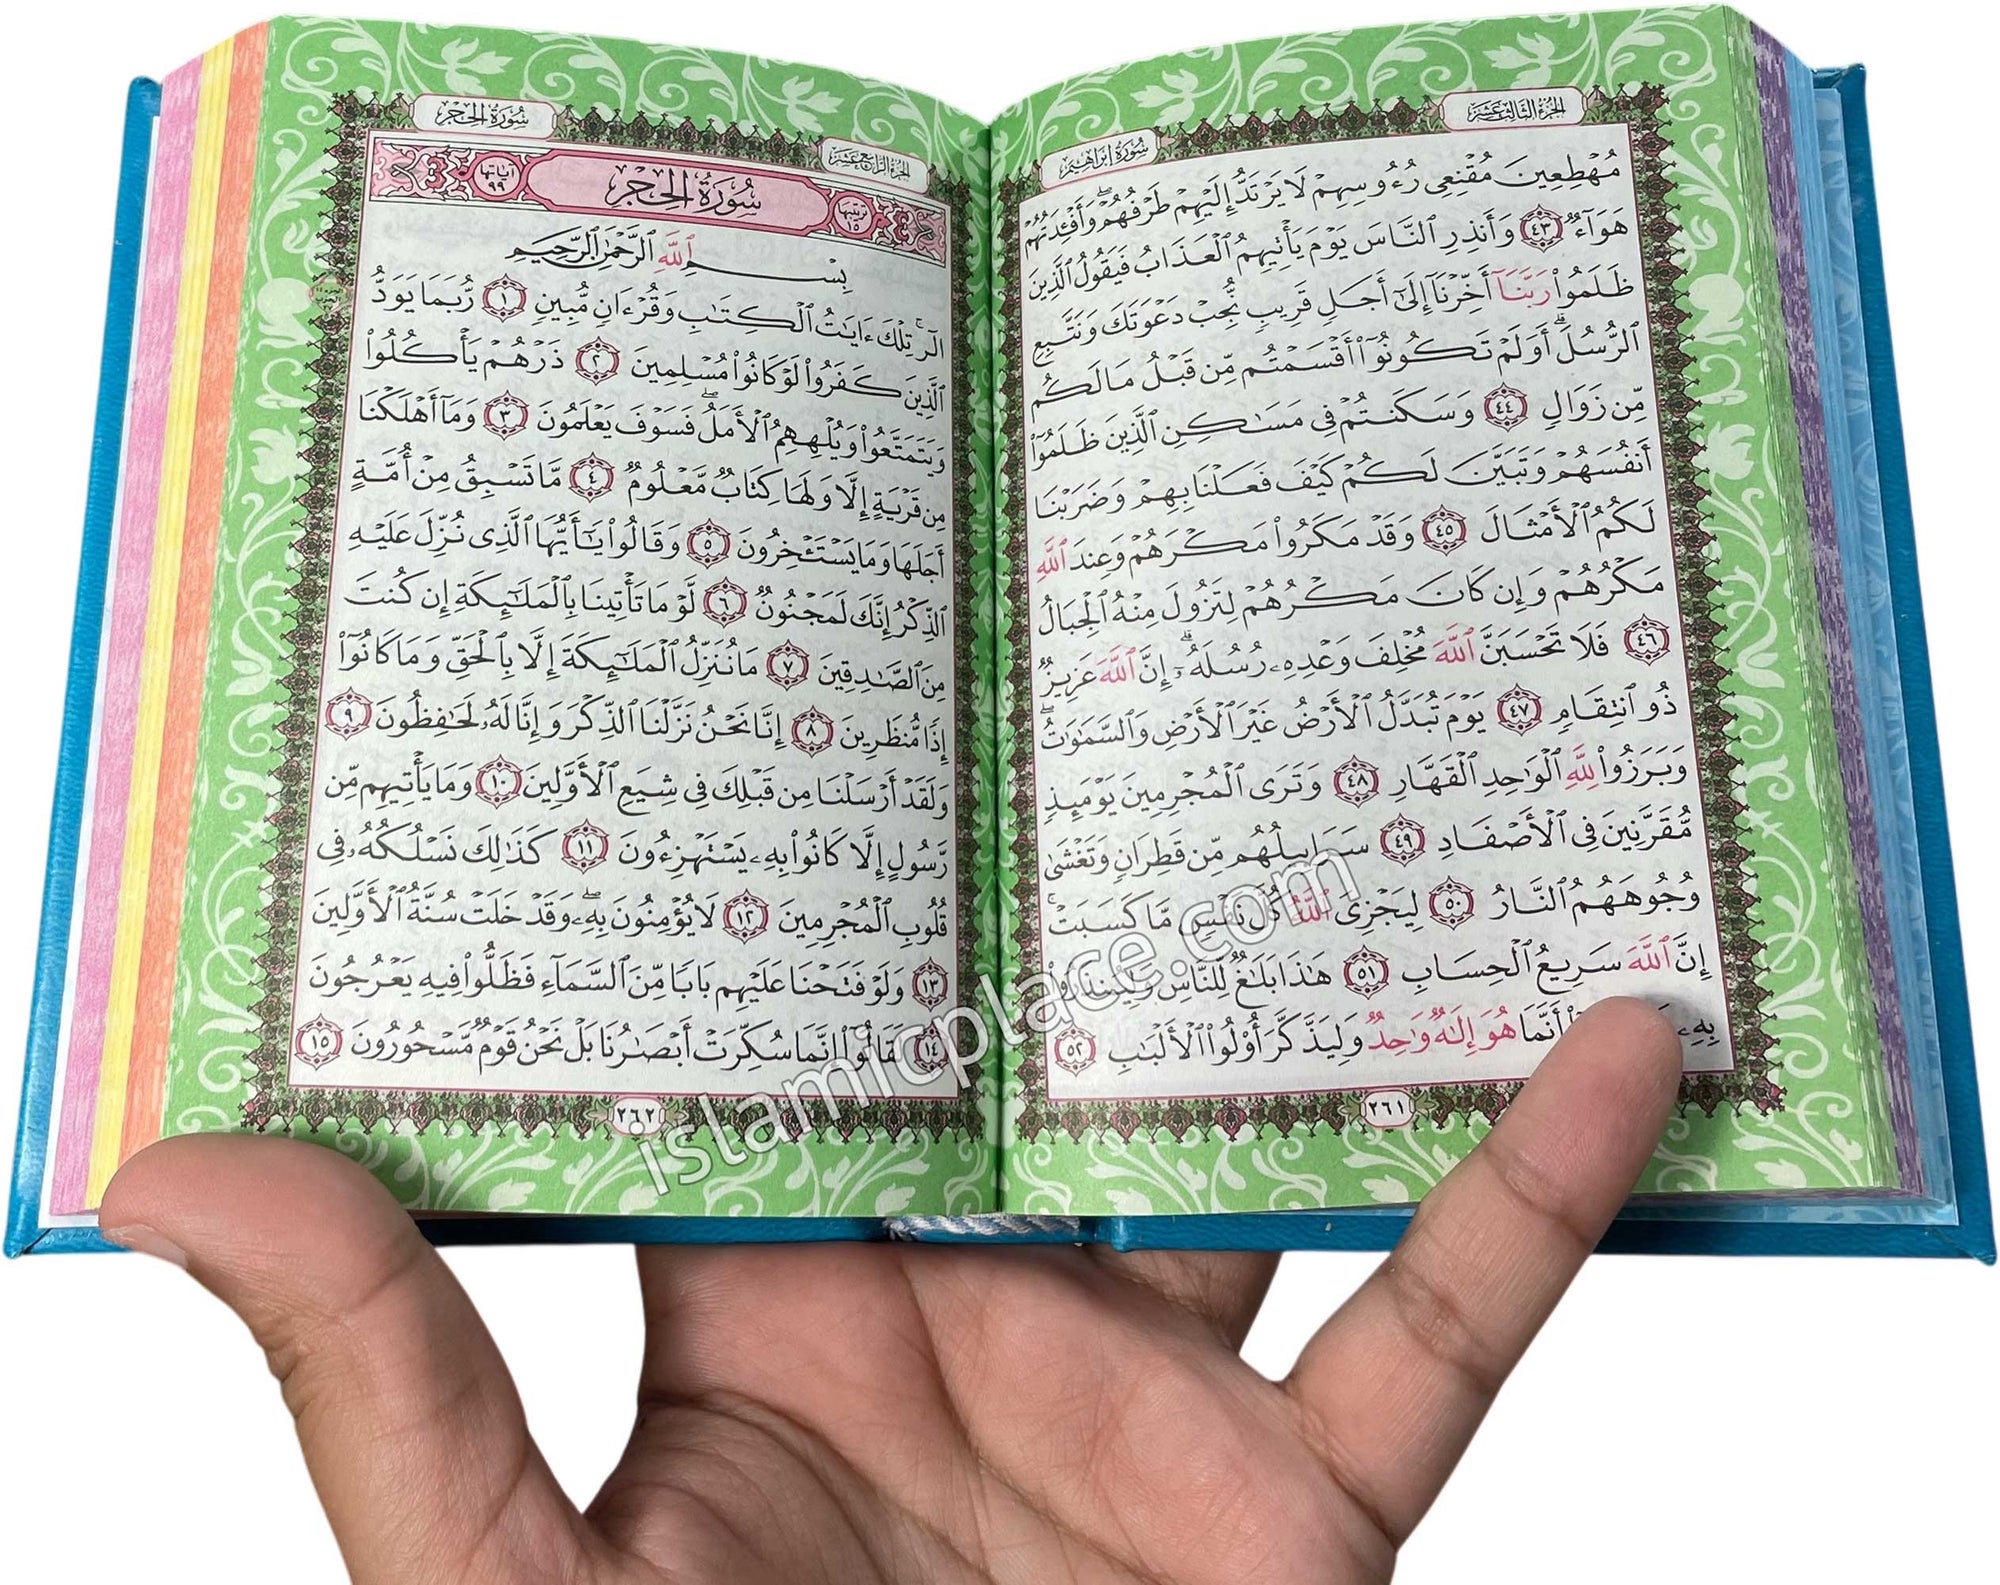 الجزء الثالث عشر
سورة إبراهيم
مُهْطِعِينَ مُقْنِعِى رُءُوسِهِمْ لَا يَرْتَدُّ إِلَيْهِمْ طَرْفُهُمْ ۖ وَأَفْـِٔدَتُهُمْ
هَوَآءٌ ٤٣ وَأَنذِرِ ٱلنَّاسَ يَوْمَ يَأْتِيهِمُ ٱلْعَذَابُ فَيَقُولُ ٱلَّذِينَ
ظَلَمُوا۟ رَبَّنَآ أَخِّرْنَآ إِلَىٰٓ أَجَلٍ قَرِيبٍ نُّجِبْ دَعْوَتَكَ وَنَتَّبِعِ
ٱلرُّسُلَ ۗ أَوَلَمْ تَكُونُوٓا۟ أَقْسَمْتُم مِّن قَبْلُ مَا لَكُم
مِّن زَوَالٍ ٤٤ وَسَكَنتُمْ فِى مَسَـٰكِنِ ٱلَّذِينَ ظَلَمُوٓا۟
أَنفُسَهُمْ وَتَبَيَّنَ لَكُمْ كَيْفَ فَعَلْنَا بِهِمْ وَضَرَبْنَا
لَكُمُ ٱلْأَمْثَالَ ٤٥ وَقَدْ مَكَرُوا۟ مَكْرَهُمْ وَعِندَ ٱللَّهِ
مَكْرُهُمْ وَإِن كَانَ مَكْرُهُمْ لِتَزُولَ مِنْهُ ٱلْجِبَالُ
٤٦ فَلَا تَحْسَبَنَّ ٱللَّهَ مُخْلِفَ وَعْدِهِۦ رُسُلَهُۥٓ ۗ إِنَّ ٱللَّهَ عَزِيزٌ
ذُو ٱنتِقَامٍ ٤٧ يَوْمَ تُبَدَّلُ ٱلْأَرْضُ غَيْرَ ٱلْأَرْضِ وَٱلسَّمَـٰوَٰتُ ۖ
وَبَرَزُوا۟ لِلَّهِ ٱلْوَٰحِدِ ٱلْقَهَّارِ ٤٨ وَتَرَى ٱلْمُجْرِمِينَ يَوْمَئِذٍ
مُّقَرَّنِينَ فِى ٱلْأَصْفَادِ ٤٩ سَرَابِيلُهُم مِّن قَطِرَانٍ وَتَغْشَىٰ
وُجُوهَهُمُ ٱلنَّارُ ٥٠ لِيَجْزِىَ ٱللَّهُ كُلَّ نَفْسٍ مَّا كَسَبَتْ ۚ
إِنَّ ٱللَّهَ سَرِيعُ ٱلْحِسَابِ ٥١ هَـٰذَا بَلَـٰغٌ لِّلنَّاسِ وَلِيُنذَرُوا۟
بِهِۦ أَنَّمَا هُوَ إِلَـٰهٌ وَٰحِدٌ وَلِيَذَّكَّرَ أُو۟لُوا۟ ٱلْأَلْبَـٰبِ ٥٢
٢٦١
الجزء الرابع عشر
سورة الحجر
ترتيبها ١٥ سُورَةُ الحِجْرِ آياتها ٩٩
بِسْمِ ٱللَّهِ ٱلرَّحْمَـٰنِ ٱلرَّحِيمِ
الٓر ۚ تِلْكَ ءَايَـٰتُ ٱلْكِتَـٰبِ وَقُرْءَانٍ مُّبِينٍ ١ رُّبَمَا يَوَدُّ
ٱلَّذِينَ كَفَرُوا۟ لَوْ كَانُوا۟ مُسْلِمِينَ ٢ ذَرْهُمْ يَأْكُلُوا۟
وَيَتَمَتَّعُوا۟ وَيُلْهِهِمُ ٱلْأَمَلُ ۖ فَسَوْفَ يَعْلَمُونَ ٣ وَمَآ أَهْلَكْنَا
مِن قَرْيَةٍ إِلَّا وَلَهَا كِتَابٌ مَّعْلُومٌ ٤ مَّا تَسْبِقُ مِنْ أُمَّةٍ
أَجَلَهَا وَمَا يَسْتَـْٔخِرُونَ ٥ وَقَالُوا۟ يَـٰٓأَيُّهَا ٱلَّذِى نُزِّلَ عَلَيْهِ
ٱلذِّكْرُ إِنَّكَ لَمَجْنُونٌ ٦ لَّوْ مَا تَأْتِينَا بِٱلْمَلَـٰٓئِكَةِ إِن كُنتَ
مِنَ ٱلصَّـٰدِقِينَ ٧ مَا نُنَزِّلُ ٱلْمَلَـٰٓئِكَةَ إِلَّا بِٱلْحَقِّ وَمَا كَانُوٓا۟
إِذًا مُّنظَرِينَ ٨ إِنَّا نَحْنُ نَزَّلْنَا ٱلذِّكْرَ وَإِنَّا لَهُۥ لَحَـٰفِظُونَ ٩
وَلَقَدْ أَرْسَلْنَا مِن قَبْلِكَ فِى شِيَعِ ٱلْأَوَّلِينَ ١٠ وَمَا يَأْتِيهِم مِّن
رَّسُولٍ إِلَّا كَانُوا۟ بِهِۦ يَسْتَهْزِءُونَ ١١ كَذَٰلِكَ نَسْلُكُهُۥ فِى
قُلُوبِ ٱلْمُجْرِمِينَ ١٢ لَا يُؤْمِنُونَ بِهِۦ ۖ وَقَدْ خَلَتْ سُنَّةُ ٱلْأَوَّلِينَ
١٣ وَلَوْ فَتَحْنَا عَلَيْهِم بَابًا مِّنَ ٱلسَّمَآءِ فَظَلُّوا۟ فِيهِ يَعْرُجُونَ
١٤ لَقَالُوٓا۟ إِنَّمَا سُكِّرَتْ أَبْصَـٰرُنَا بَلْ نَحْنُ قَوْمٌ مَّسْحُورُونَ ١٥
٢٦٢
islamicplace.com